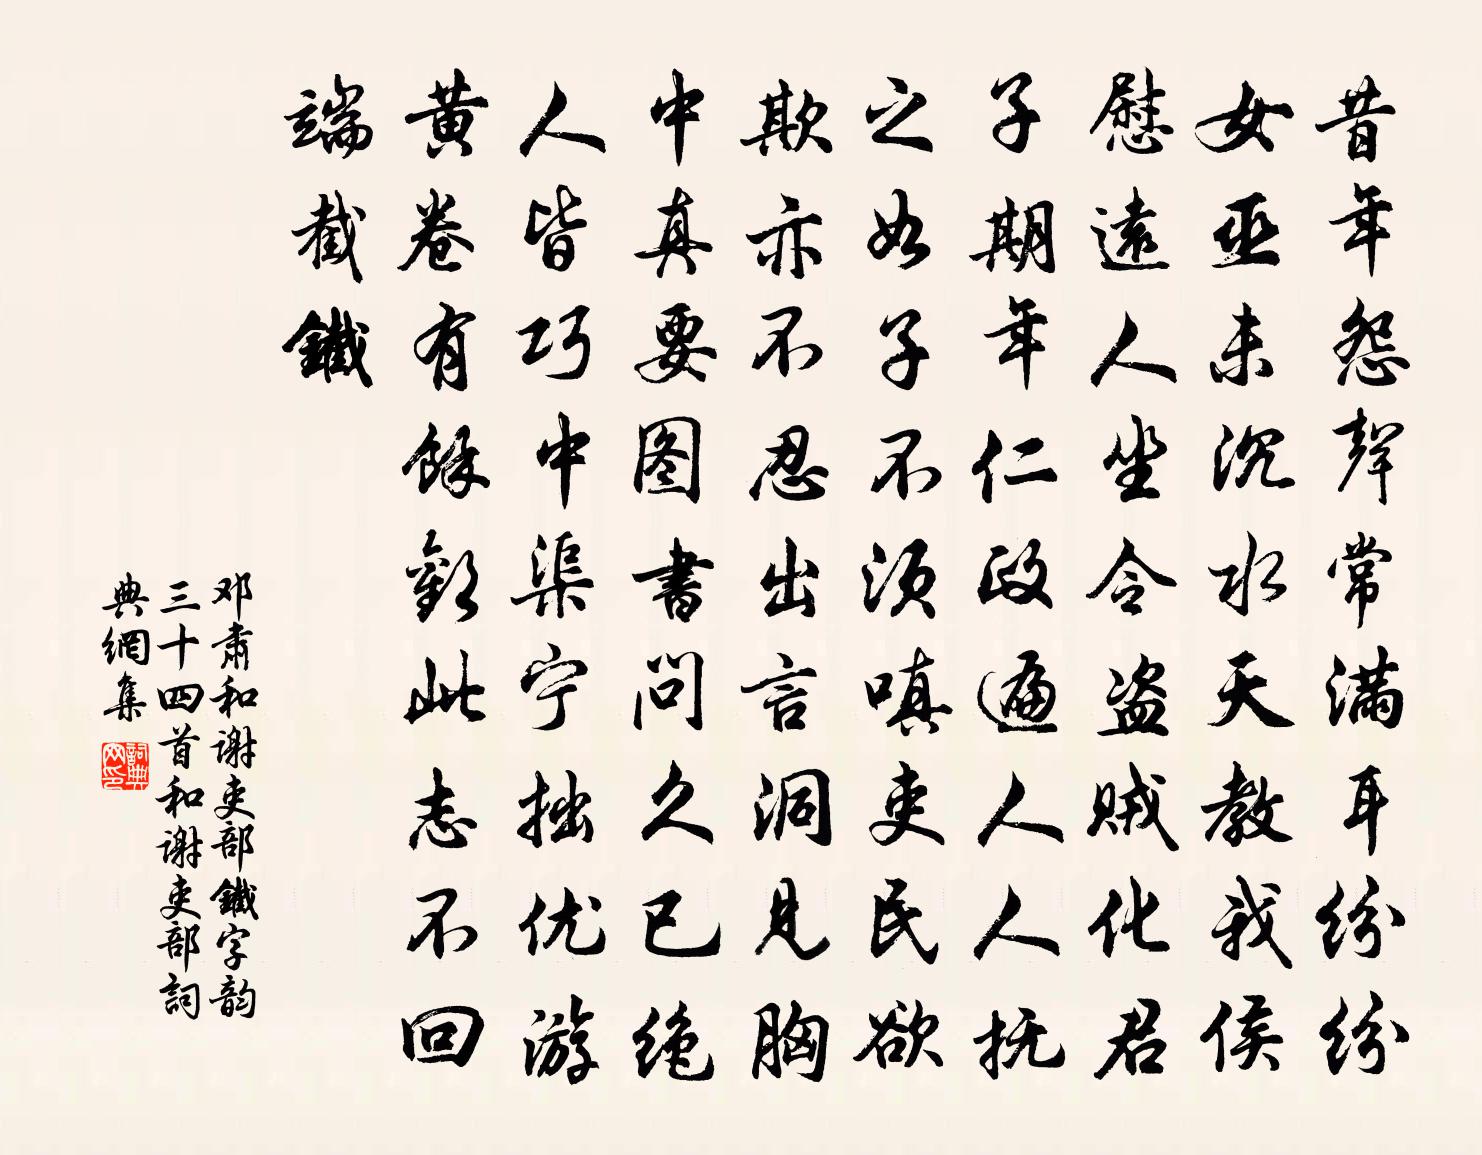 昔年怨聲常滿耳紛紛
女巫未沉水天教我侯
慰遠人坐令盗賊化君
子期年仁政遍人人抚
之如子不須嗔吏民欲
欺亦不忍出言洞見胸
中真要图書問久已绝
人皆巧中渠宁拙优游
黄卷有餘歡此志不回
端截鐵
邓肃和谢吏部鐵字韵
三十四首和谢吏部詞
典網集
詞典网印